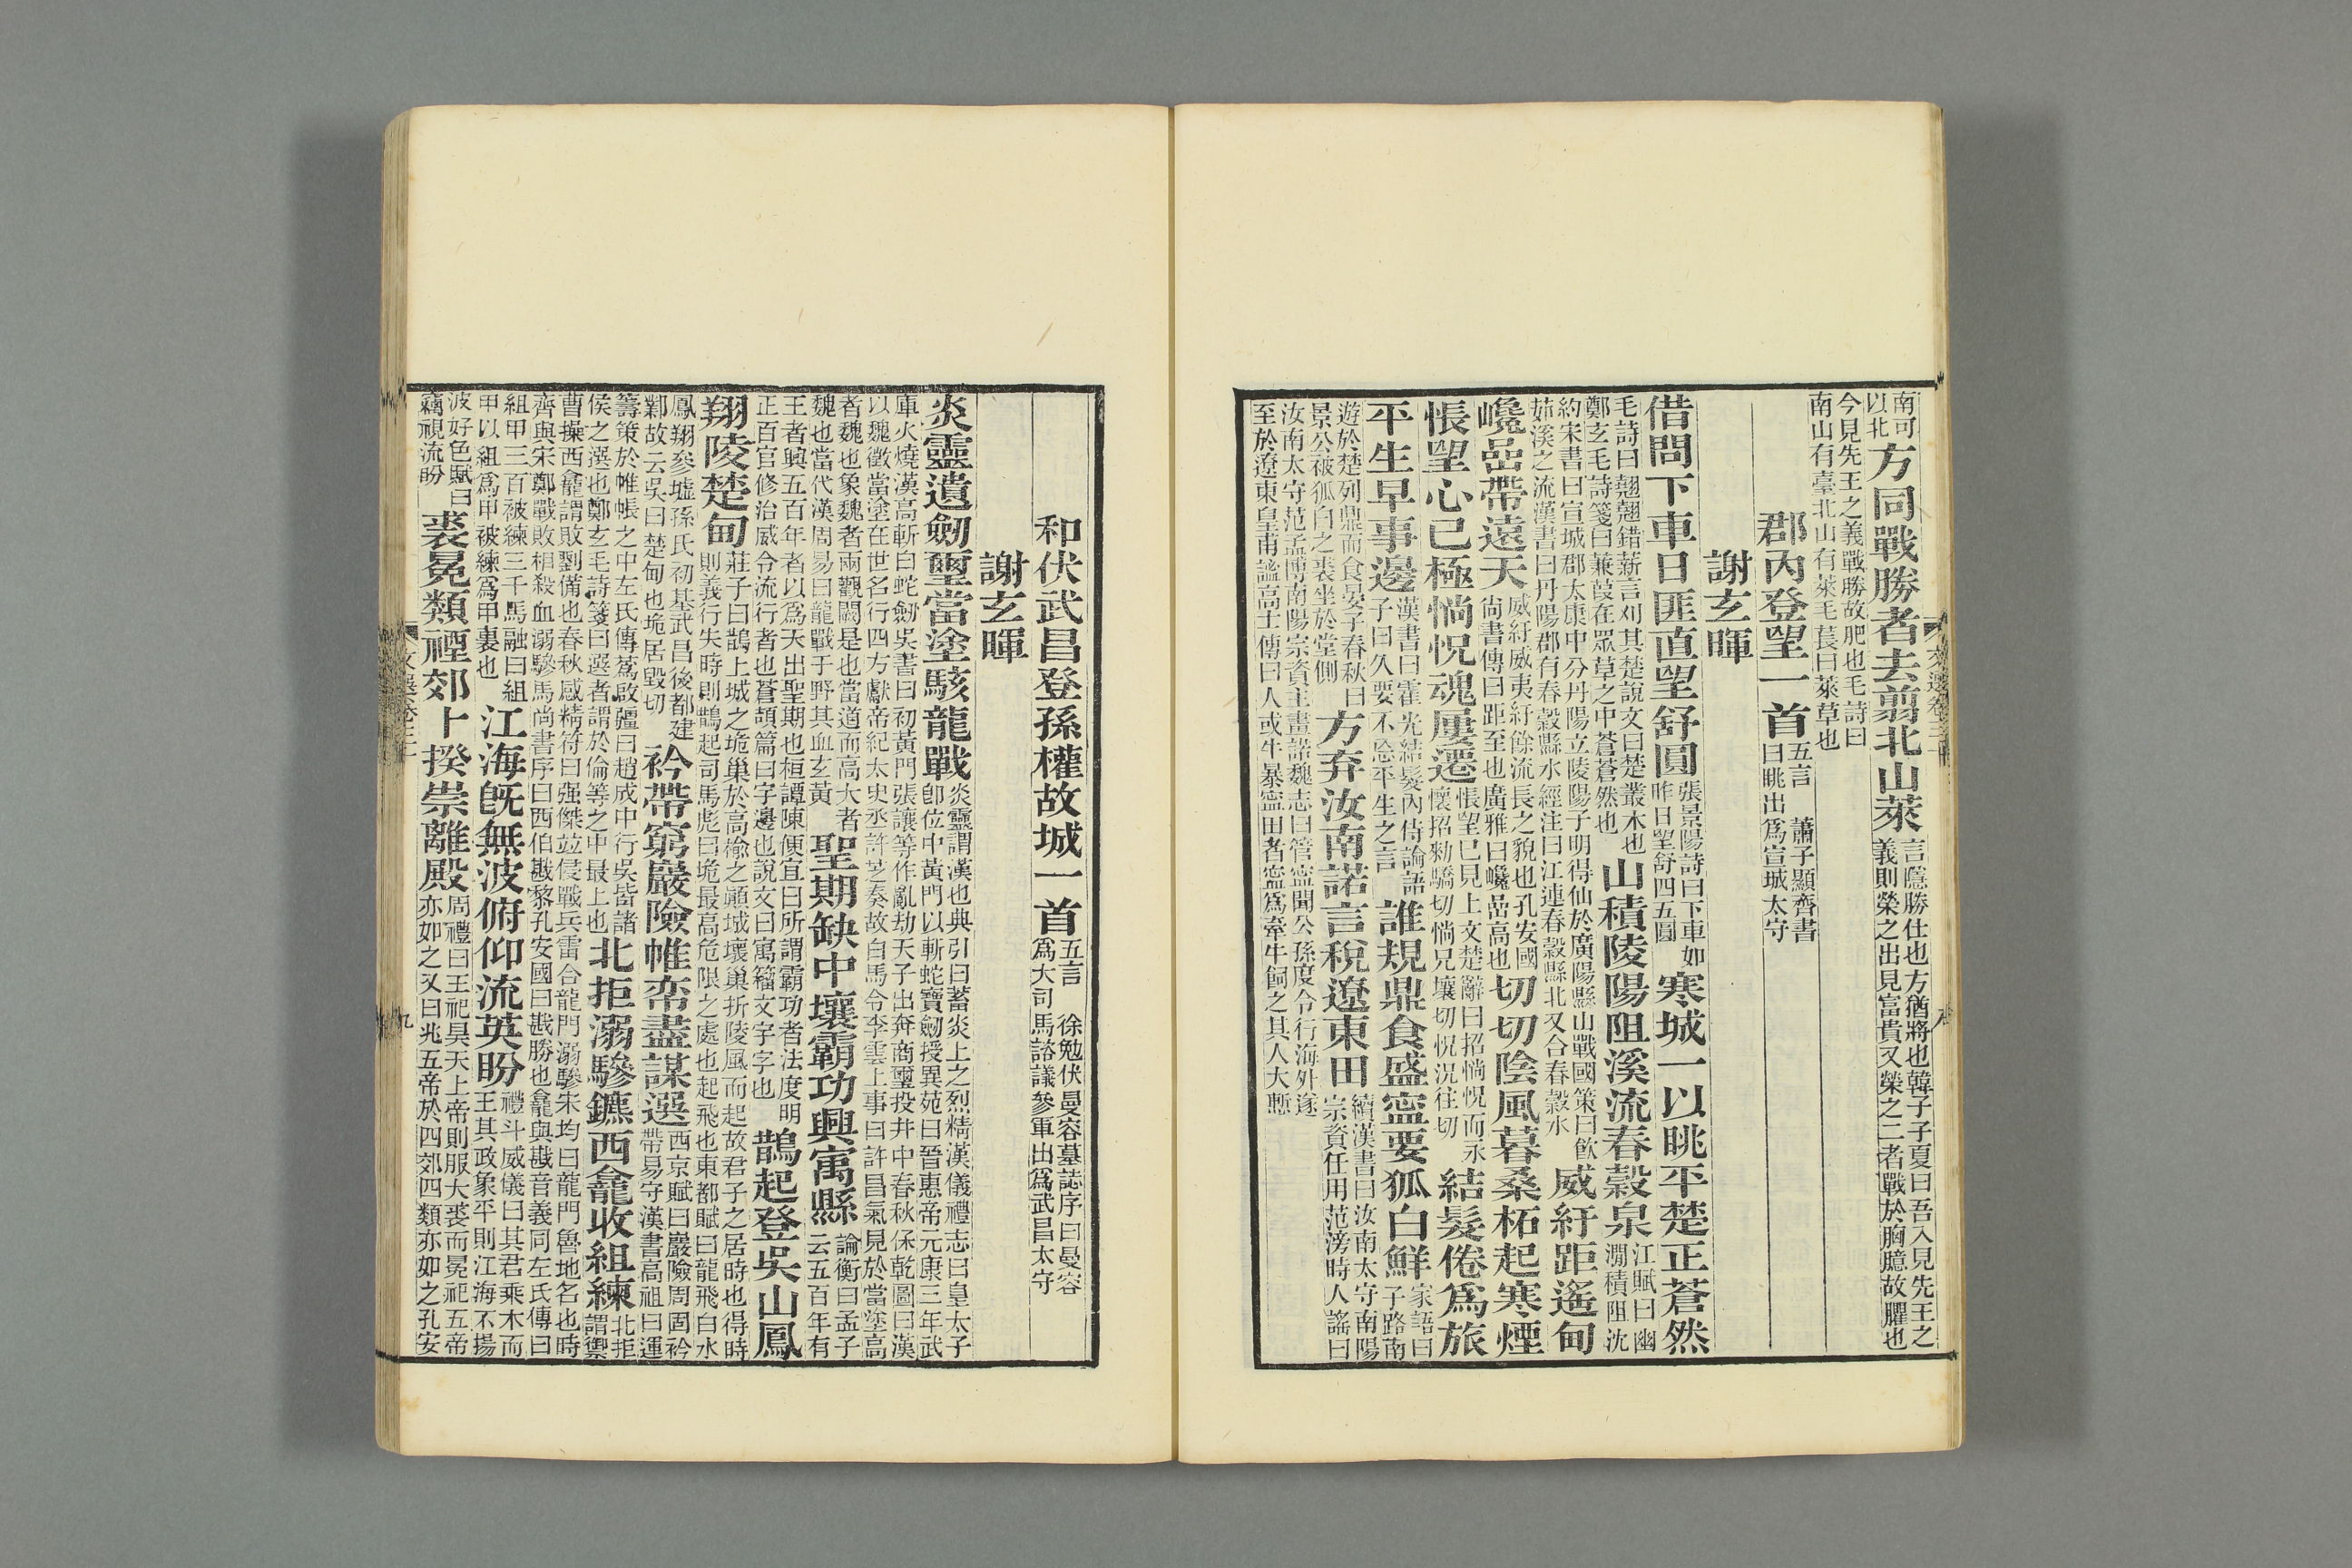 南可
以北
方同戰勝者去翦北山萊
言隱勝仕也方猶將也韓子子夏曰吾入見先王之
義則榮之出見富貴又榮之二者戰於胸臆故臞也
今見先王之義戰勝故肥也毛詩曰
南山有臺北山有萊毛萇曰萊草也
郡內登望一首
五言 蕭子顯齊書
曰眺出爲宣城太守
謝玄暉
借問下車日匪直望舒圓
張景陽詩曰下車如
昨日望舒四五圓
寒城一以眺平楚正蒼然
毛詩曰翹翹錯薪言刈其楚說文曰楚叢木也
鄭玄毛詩箋曰蒹葭在眾草之中蒼蒼然也
山積陵陽阻溪流春穀泉
江賦曰幽
澗積阻沈
約宋書曰宣城郡太康中分丹陽立陵陽子明得仙於廣陽縣山戰國策曰飲
茹溪之流漢書曰丹陽郡有春穀縣水經注曰江連春穀縣北又合春穀水
威紆距遙甸
巉嵒帶遠天
威紆威夷紆餘流長之貌也孔安國
尚書傳曰距至也廣雅曰巉嵒高也
切切陰風暮桑柘起寒煙
悵望心已極惝怳魂屢遷
悵望已見上文楚辭曰招惝怳而永
懷招勑驕切惝兄壤切怳況往切
結髮倦爲旅
平生早事邊
漢書曰霍光結髮內侍論語
子曰久要不忘平生之言
誰規鼎食盛寍要狐白鮮
家語曰
子路南
遊於楚列鼎而食晏子春秋曰
景公被狐白之裘坐於堂側
方弃汝南諾言稅遼東田
續漢書曰汝南太守南陽
宗資任用范滂時人謠曰
汝南太守范孟博南陽宗資主畫諾魏志曰管寍聞公孫度令行海外遂
至於遼東皇甫謐高士傳曰人或牛暴寍田者寍爲牽牛飼之其人大慙
和伏武昌登孫權故城一首
五言 徐勉伏曼容墓誌序曰曼容
爲大司馬諮議參軍出爲武昌太守
謝玄暉
炎靈遺劒璽當塗駭龍戰
炎靈謂漢也典引曰蓄炎上之烈精漢儀禮志曰皇太子
卽位中黃門以斬蛇寶劒授異苑曰晉惠帝元康三年武
庫火燒漢高斬白蛇劒吳書曰初黃門張讓等作亂劫天子出奔商璽投井中春秋保乾圖曰漢
以魏徵當塗在世名行四方獻帝紀太史丞許芝奏故白馬令李雲上事曰許昌氣見於當塗高
者魏也象魏者兩觀闕是也當道而高大者
魏也當代漢周易曰龍戰于野其血玄黃
聖期缺中壤霸功興㝢縣
論衡曰孟子
云五百年有
王者興五百年者以爲天出聖期也桓譚陳便宜曰所謂霸功者法度明
正百官修治威令流行者也蒼頡篇曰字邊也說文曰㝢籀文字字也
鵲起登吳山鳳
翔陵楚甸
莊子曰鵲上城之垝巢於高榆之顚城壞巢折陵風而起故君子之居時也得時
則義行失時則鵲起司馬彪曰垝最高危限之處也起飛也東都賦曰龍飛白水
鳳翔參墟孫氏初基武昌後都建
鄴故云吳曰楚甸也垝居毀切
衿帶窮巖險帷帟盡謀選
西京賦曰巖險周固衿
帶易守漢書高祖曰運
籌策於帷帳之中左氏傳蒍啟彊曰趙成中行吳皆諸
侯之選也鄭玄毛詩箋曰選者謂於倫等之中最上也
北拒溺驂鑣西龕收組練
北拒
謂禦
曹操西龕謂敗劉備也春秋感精符曰强傑並侵戰兵雷合龍門溺驂朱均曰龍門魯地名也時
齊與宋鄭戰敗相殺血溺驂馬尚書序曰西伯戡黎孔安國曰戡勝也龕與戡音義同左氏傳曰
組甲三百被練三千馬融曰組
甲以組爲甲被練爲甲裏也
江海旣無波俯仰流英盼
禮斗威儀曰其君乘木而
王其政象平則江海不揚
波好色賦曰
竊視流盼
裘冕類禋郊卜揆崇離殿
周禮曰王祀昊天上帝則服大裘而冕祀五帝
亦如之又曰兆五帝於四郊四類亦如之孔安
九